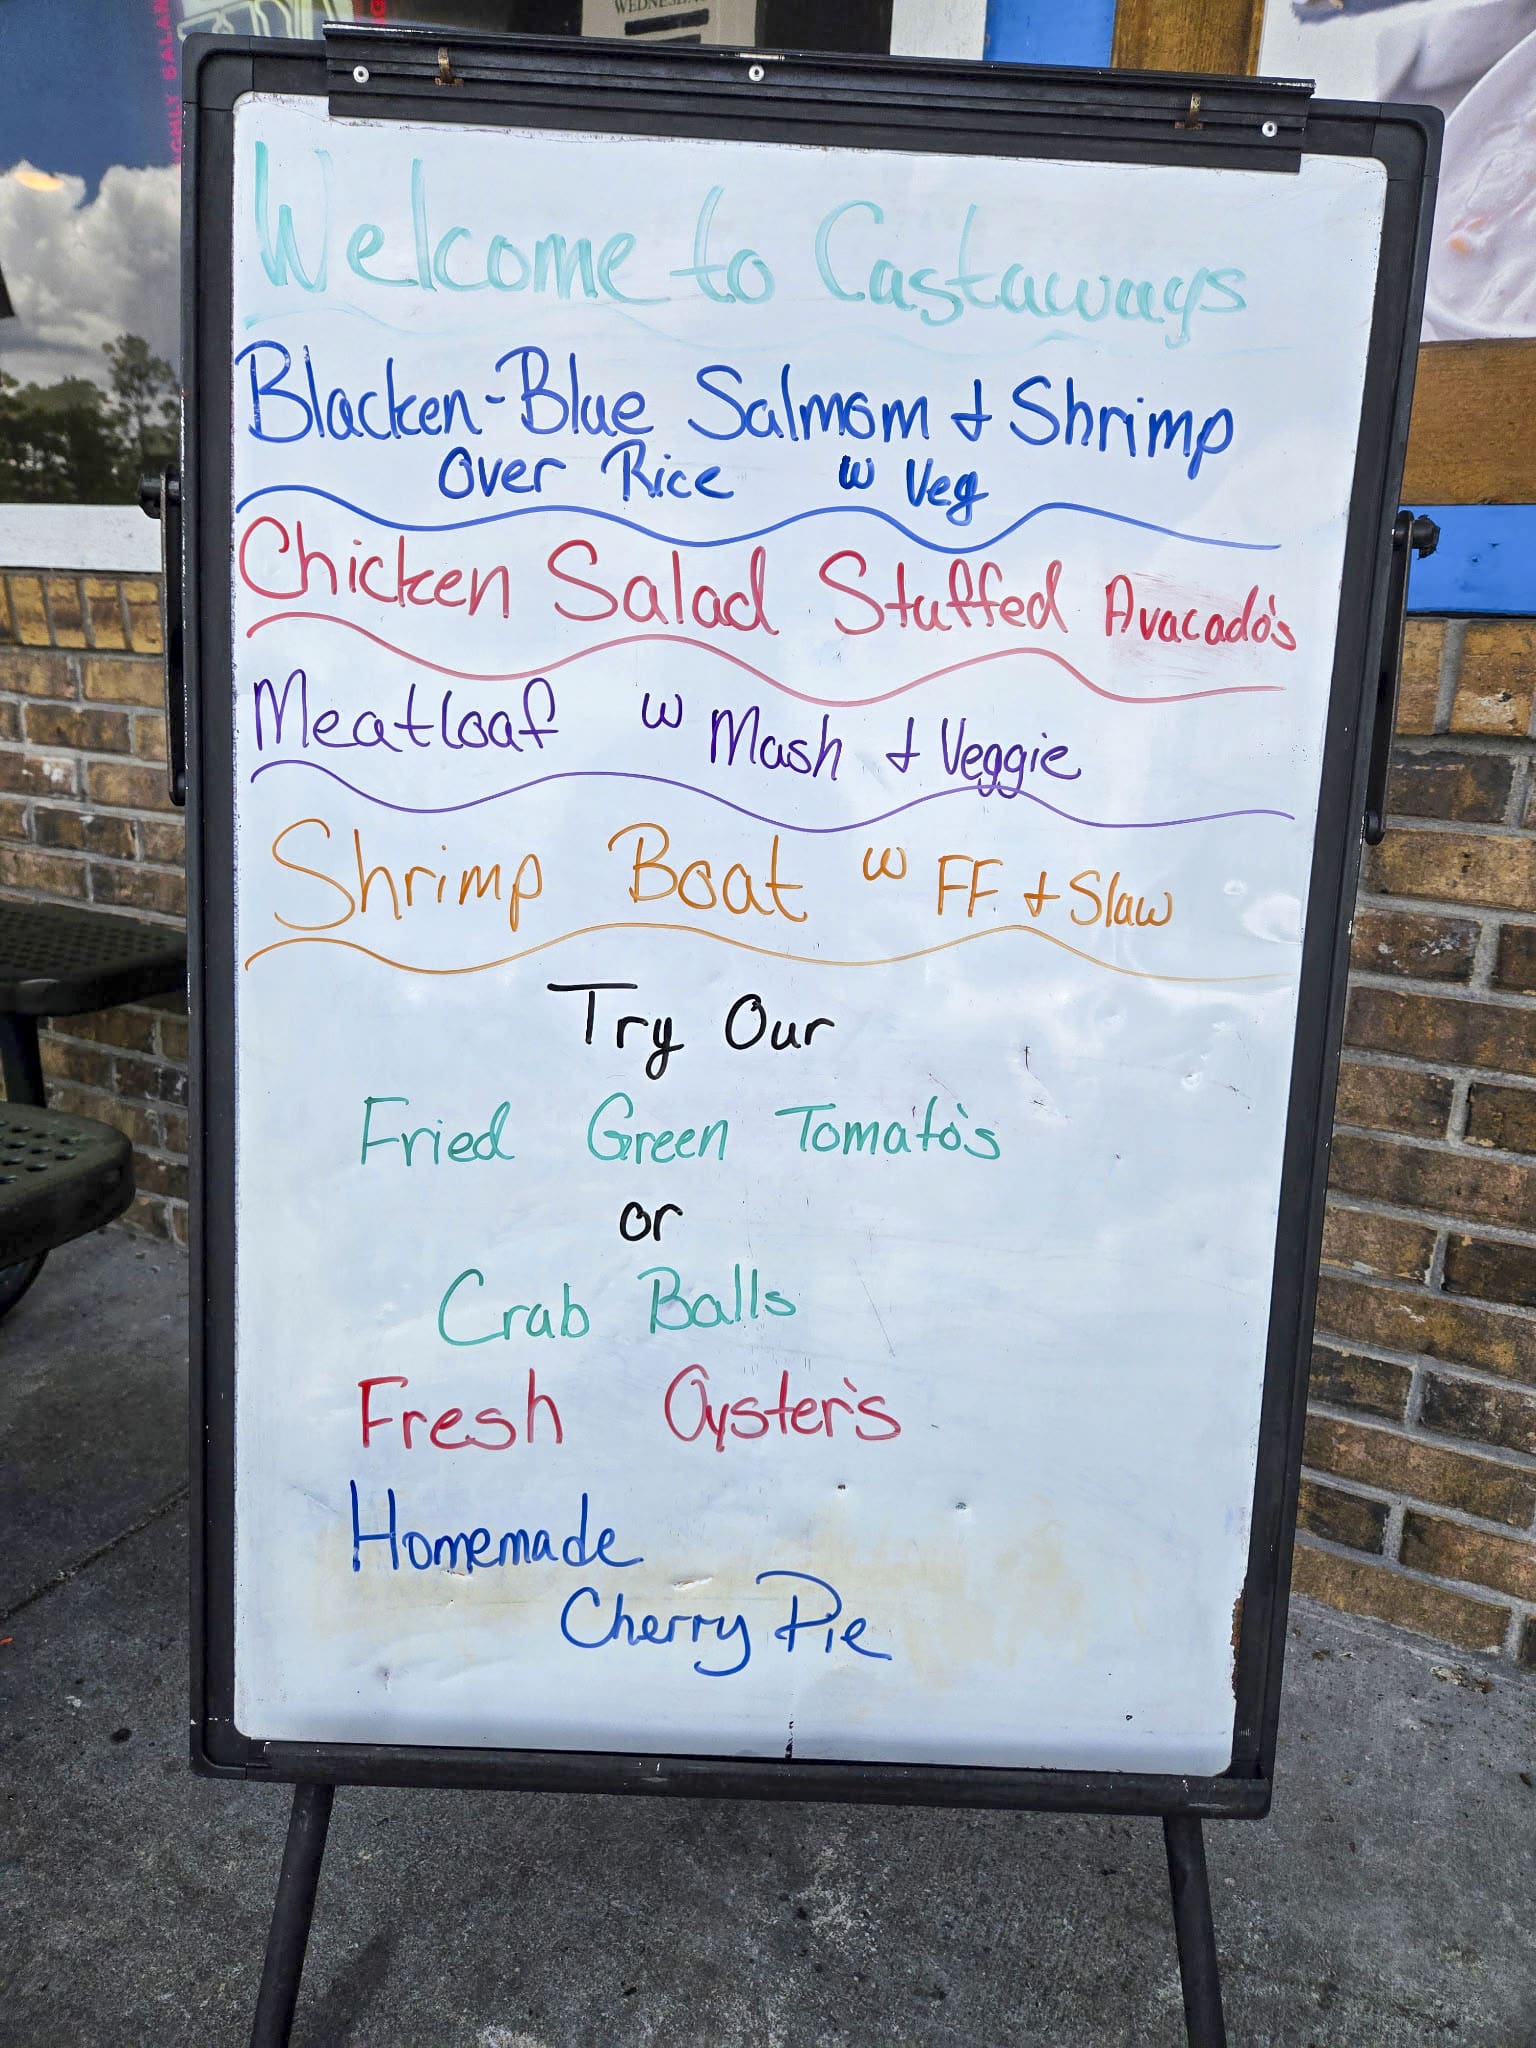 WEDNESDAY
Welcome to Castaways
Blacken-Blue Salmom + Shrimp
Over Rice w Veg
Chicken Salad Stuffed Avacado's
Meatloaf w Mash + Veggie
Shrimp Boat w FF + Slaw
Try Our
Fried Green Tomato's
or
Crab Balls
Fresh Oyster's
Homemade
Cherry Pie